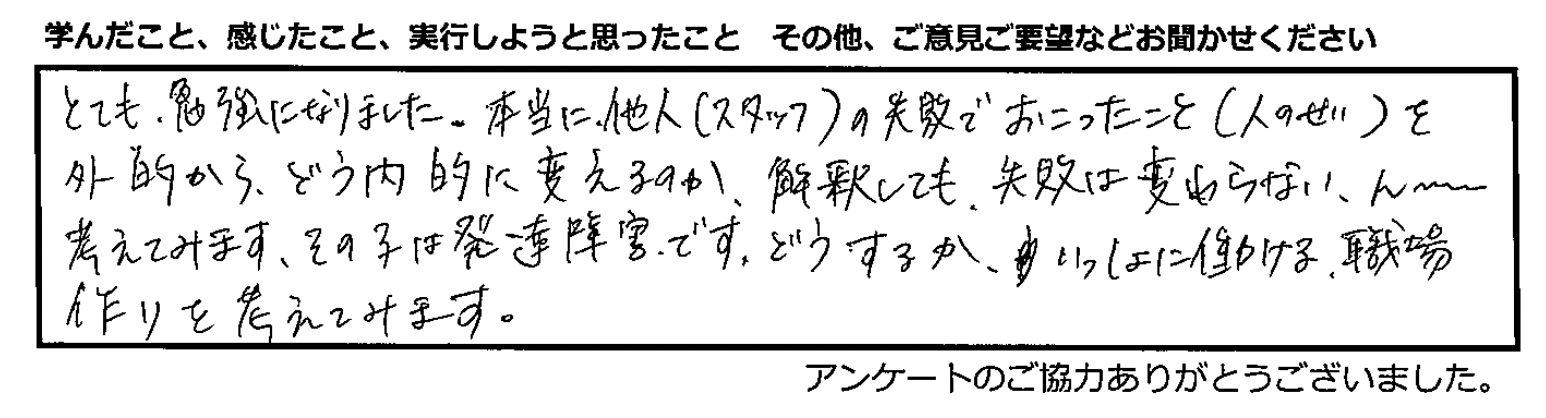 学んだこと、感じたこと、実行しようと思ったこと　その他、ご意見ご要望などお聞かせください
とても、勉強になりました。本当に、他人(スタッフ)の失敗でおこったこと(人のせい)を
外的から、どう内的に変えるのか、解釈しても、失敗は変わらない、ん〜〜
考えてみます、その子は発達障害です。どうするか、いっしょに働ける、職場
作りを考えてみます。
アンケートのご協力ありがとうございました。